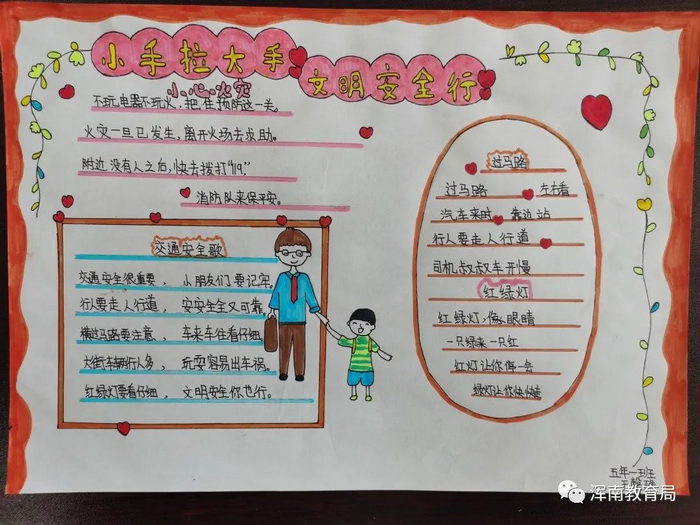 小手拉大手
文明安全行
小心火灾
不玩电器不玩火，把住预防这一关。
火灾一旦已发生，离开火场去求助。
附近没有人之后，快去拨打“119，”
消防队来保平安。
交通安全歌
交通安全很重要，小朋友们要记牢。
行人要走人行道，安安全全又可靠。
横过马路要注意，车来车往看仔细。
大街车辆行人多，玩耍容易出车祸。
红绿灯要看仔细，文明安全你也行。
过马路
过马路 左右看
汽车来时 靠边站
行人要走人行道
司机叔叔车开慢
红绿灯
红绿灯，像眼睛
一只绿来一只红
红灯让你停一会
绿灯让你快快走
五年一班
浑南教育局